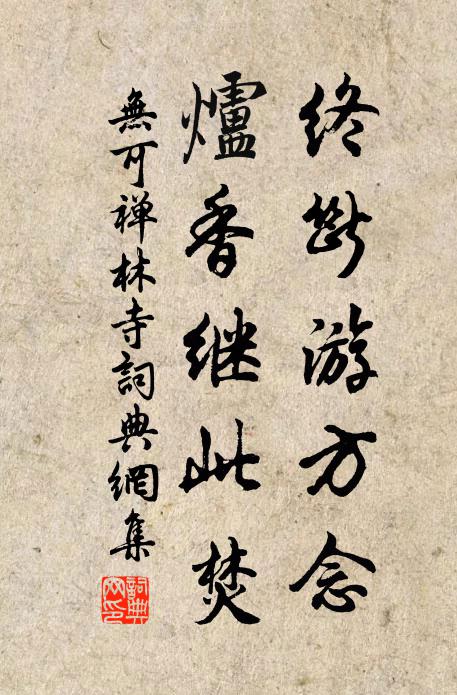 终断游方念
爐香继此焚
無可禅林寺詞典網集
詞典
网印